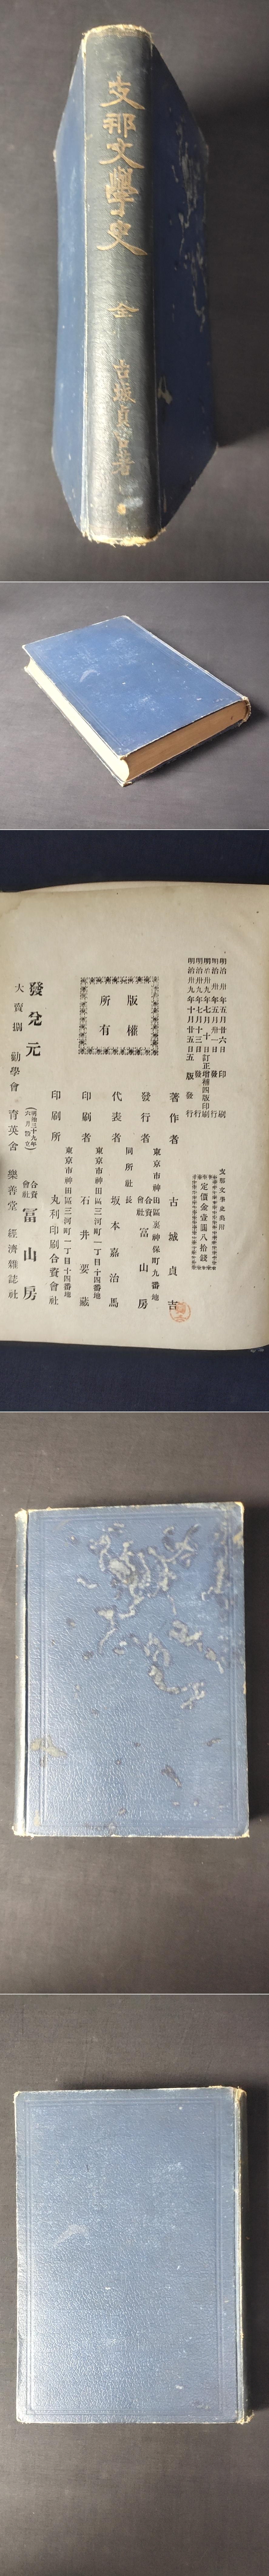 支那文學史
全
古城貞吉著
明治卅年五月廿六日印刷
明治卅年五月卅一日發行
明治卅九年七月十日訂正增補四版印刷
明治卅九年七月十三日發行
明治卅九年十月廿五日五版發行
定價金壹圓八拾錢
版權
所有
著作者 古城貞吉
東京市神田區裏神保町九番地
發行者 合資會社 冨山房
同所社長
代表者 坂本嘉治馬
東京市神田區三河町一丁目十四番地
印刷者 石井要藏
東京市神田區三河町一丁目十四番地
印刷所 丸利印刷合資會社
發兌元 合資會社 冨山房
大賣捌 勸學會 育英舍 樂善堂 經濟雜誌社